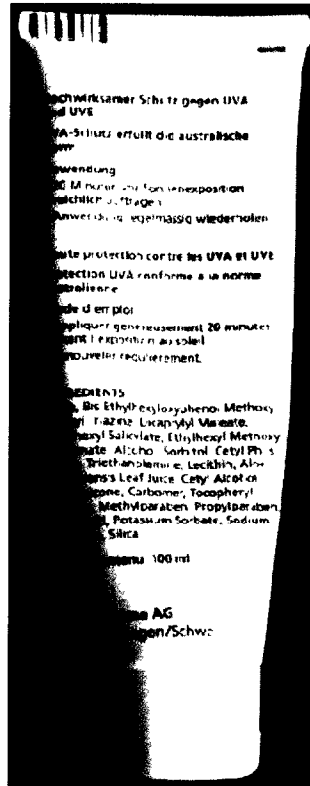 chwirksamer Schutz gegen UVA
d UVB
A-Schutz erfüllt die australische
wendung
Minuten vor Sonnenexposition
ichlich auftragen
Anwendung regelmässig wiederholen
ute protection contre les UVA et UVB
tection UVA conforme a la norme
stralienne
de d'emploi
ppliquer généreusement 20 minutes
ant l'exposition au soleil
nouveler régulièrement.
EDIENTS
, Bis Ethylhexyloxyphenol Methoxy
Triazine, Dicaprylyl Maleate,
exyl Salicylate, Ethylhexyl Methoxy
Alcohol, Sorbitol, Cetyl
Triethanolamine, Lecithin, Aloe
ensis Leaf Juice, Cetyl Alcohol
one, Carbomer, Tocopheryl
Methylparaben, Propylparaben,
Potassium Sorbate, Sodium
Silica
tenu 100 ml
AG
gen/Schwe